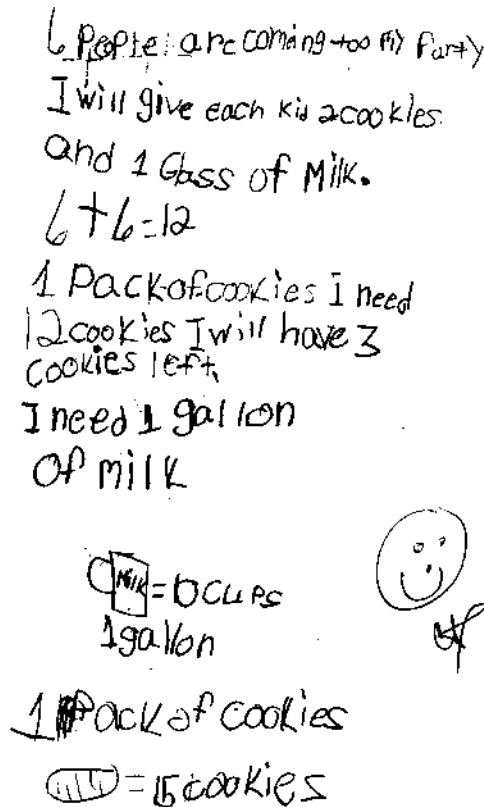 6 People are coming too my Party
I will give each kid 2 cookies
and 1 Glass of Milk.
6+6=12
1 Pack of cookies I need
12 cookies I will have 3
cookies left.
I need 1 gallon
of milk
Milk = cups
1 gallon
1 Pack of cookies
= 15 cookies